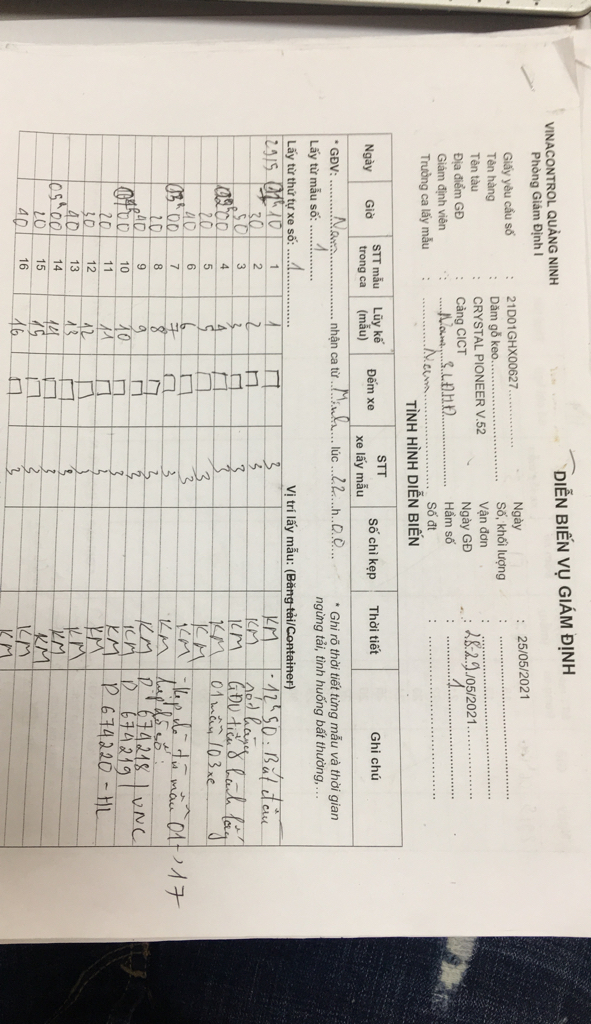 VINACONTROL QUẢNG NINH
Phòng Giám Định I
DIỄN BIẾN VỤ GIÁM ĐỊNH
Giấy yêu cầu số : 21D01GHX00627
Ngày : 25/05/2021
Tên hàng : Dăm gỗ keo
Số, khối lượng :
Tên tàu : CRYSTAL PIONEER V.52
Vận đơn :
Địa điểm GĐ : Cảng CICT
Ngày GĐ : 28-29/05/2021
Giám định viên : Nam
Hầm số : 1
Trưởng ca lấy mẫu : Nam
Số đt :
TÌNH HÌNH DIỄN BIẾN
* GĐV: Nam nhận ca từ Minh lúc 22 h 00
* Ghi rõ thời tiết từng mẫu và thời gian
Lấy từ mẫu số: 1
ngừng tải, tình huống bất thường,...
Lấy từ thứ tự xe số: 1
Vị trí lấy mẫu: (Băng tải/Container)
Ngày Giờ STT mẫu trong ca Lũy kế (mẫu) Đếm xe STT xe lấy mẫu Số chì kẹp Thời tiết Ghi chú
29/5 01h10 1 1 3 KM - 12h50: Bắt đầu
30 2 2 3 KM dỡ hàng
50 3 3 3 KM GĐV tiến hành lấy
02h00 4 4 3 KM 01 mẫu/03 xe
20 5 5 3 KM
40 6 6 3 KM - kẹp chì từ mẫu 01 -> 17
03h00 7 7 3 KM
20 8 8 3 KM P 674218 / VNC
40 9 9 3 KM P 674219
04h00 10 10 3 KM P 674220 - HL
20 11 11 3 KM
30 12 12 3 KM
40 13 13 3 KM
05h00 14 14 3 KM
20 15 15 3 KM
40 16 16 3 KM